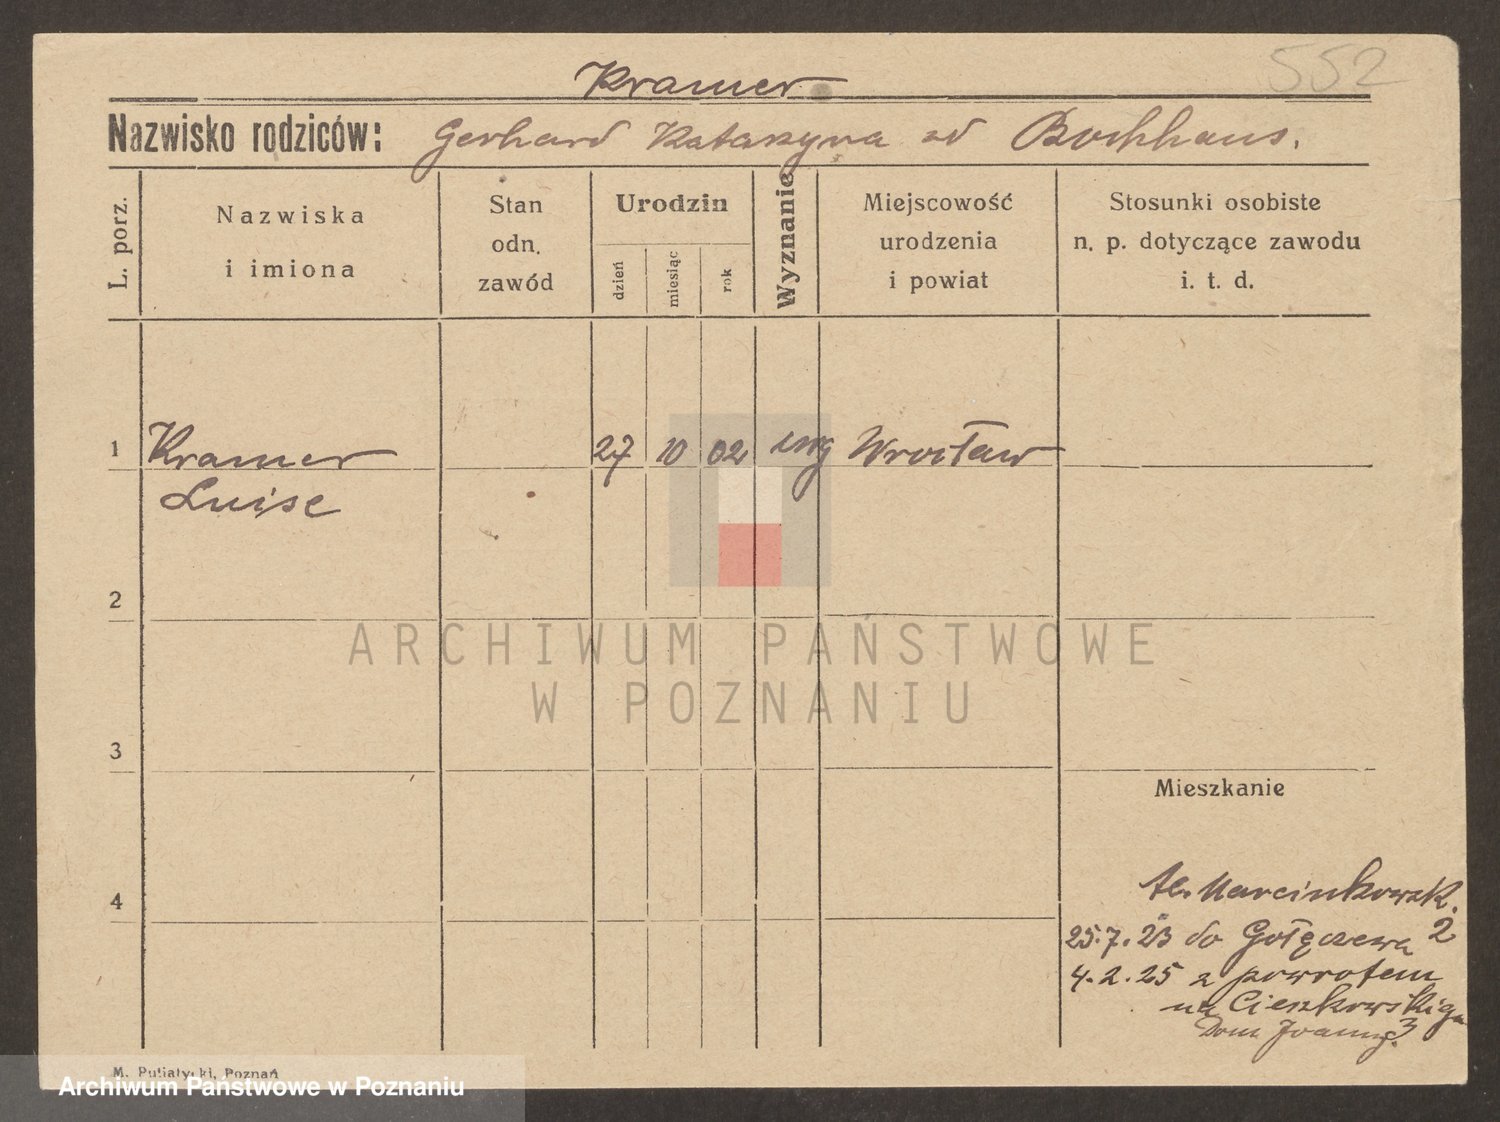 552
Kramer
Nazwisko rodziców: Gerhard Katarzyna zd Bochhaus.
L. porz.
Nazwiska
i imiona
Stan
odn.
zawód
Urodzin
dzień
miesiąc
rok
Wyznanie
Miejscowość
urodzenia
i powiat
Stosunki osobiste
n. p. dotyczące zawodu
i. t. d.
1 Kramer 27 10 02 ewg Wrocław
Luise
2
ARCHIWUM PAŃSTWOWE
W POZNANIU
3
Mieszkanie
4
Al. Marcinkowsk. 2
25.7.23 do Gołęczewa
4.2.25 z powrotem
na Cieszkowskiego 3
Dom
M. Putiatycki, Poznań
Archiwum Państwowe w Poznaniu